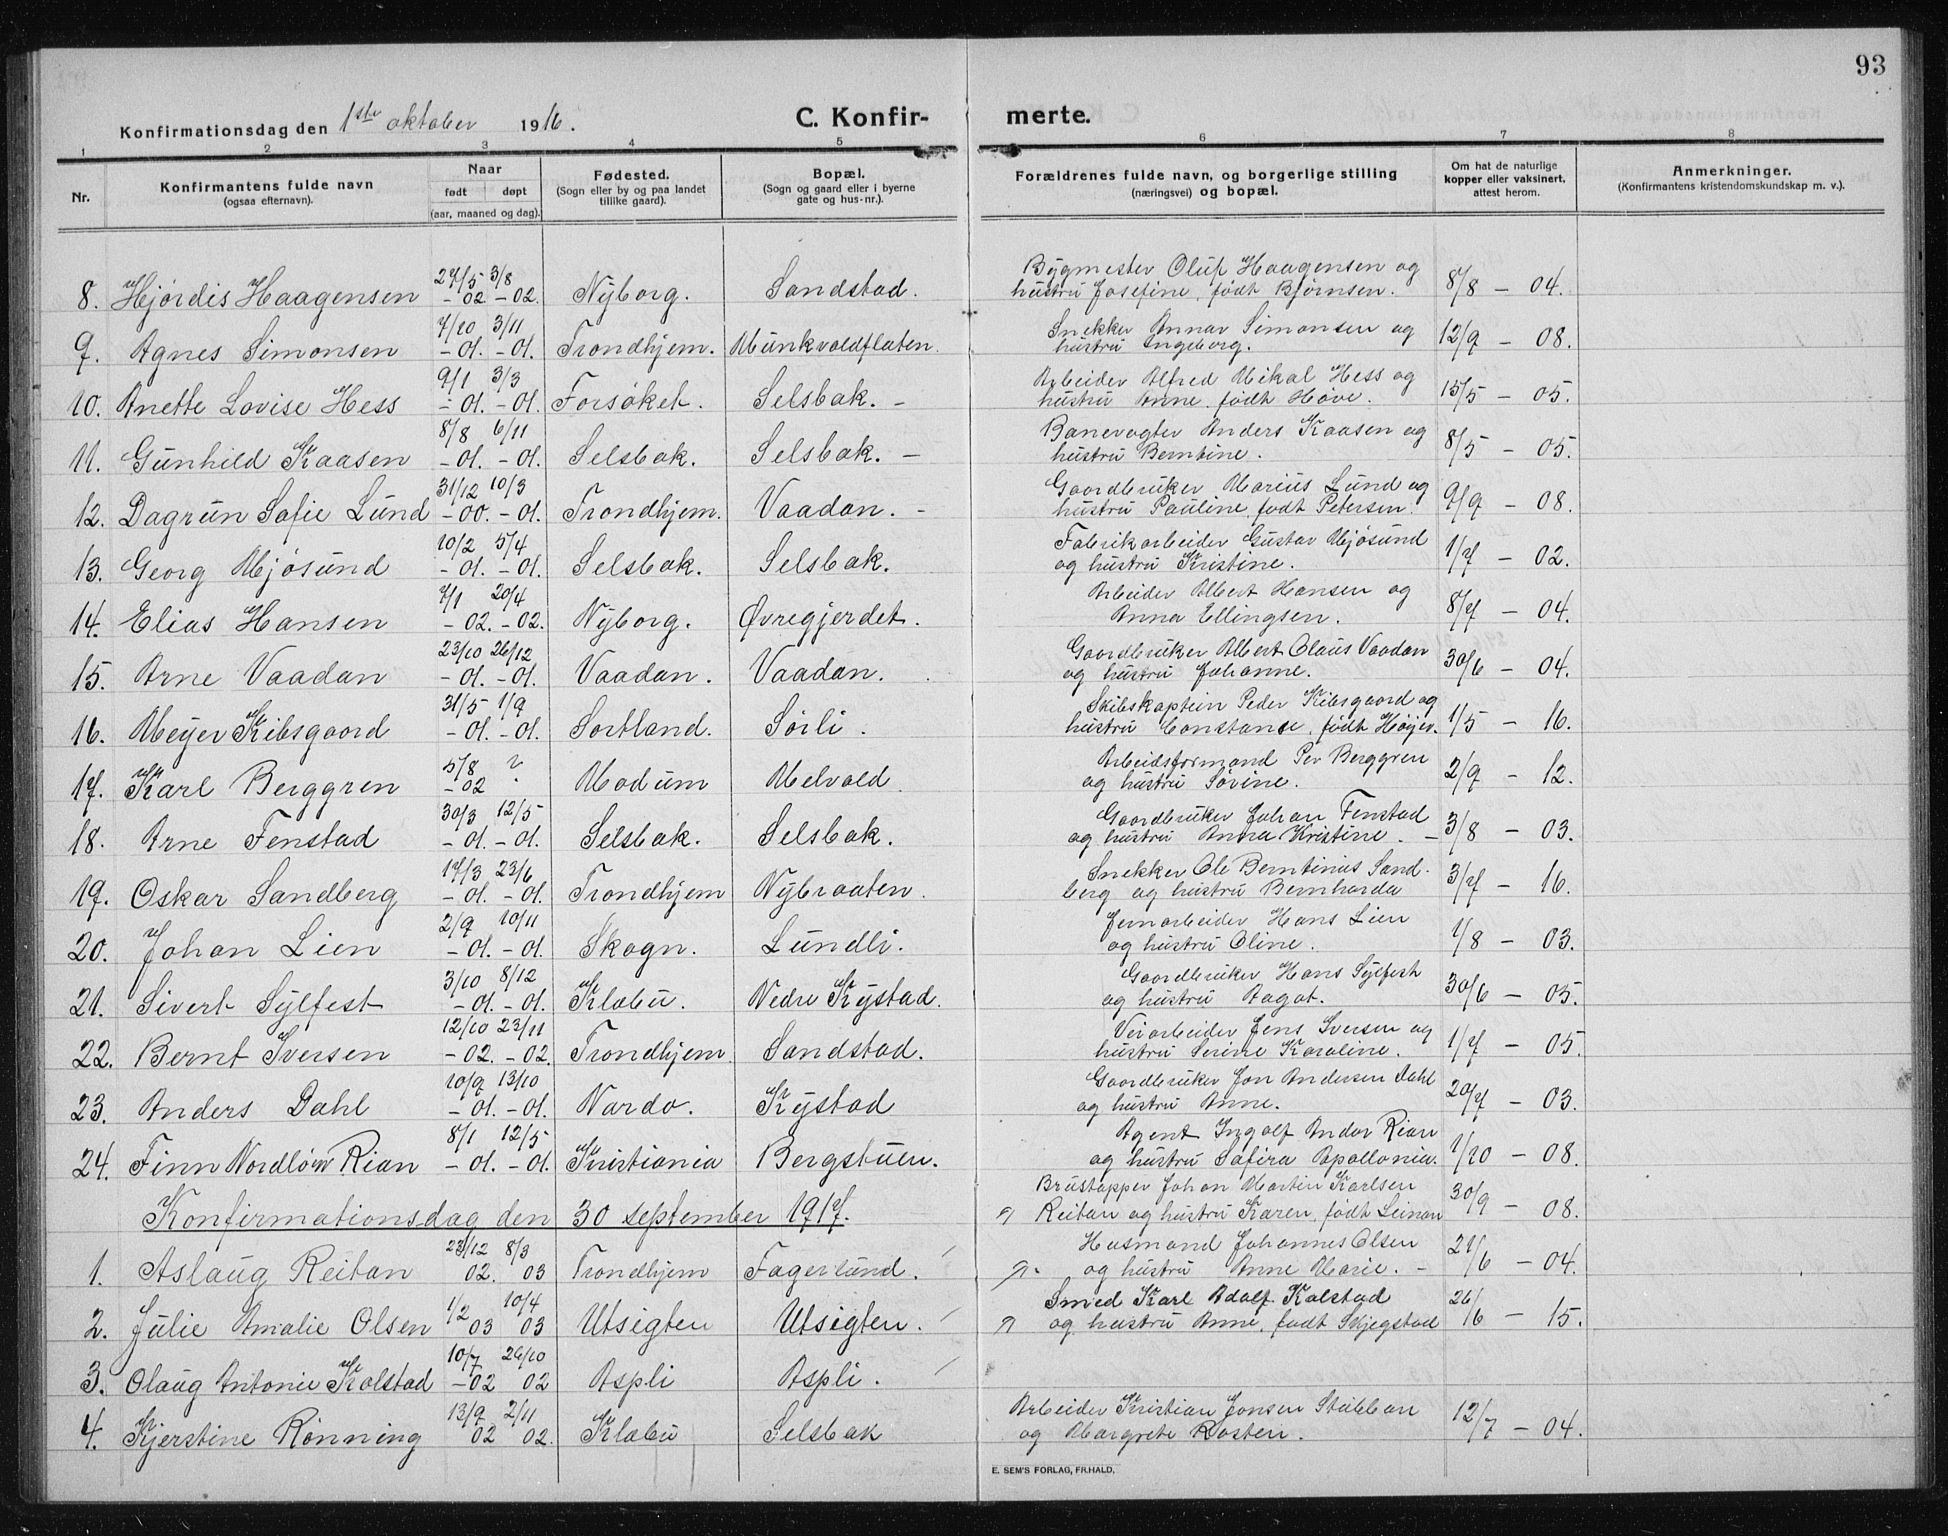 93
Konfirmationsdag den 1ste oktober 1916.
C. Konfirmerte.
1 2 3 4 5 6 7 8
Nr. Konfirmantens fulde navn (ogsaa efternavn). Naar født døpt (aar, maaned og dag). Fødested. (Sogn eller by og paa landet tillike gaard). Bopæl. (Sogn og gaard eller i byerne gate og hus-nr.). Forældrenes fulde navn, og borgerlige stilling (næringsvei) og bopæl. Om hat de naturlige kopper eller vaksinert, attest herom. Anmerkninger. (Konfirmantens kristendomskundskap m. v.).
8. Hjørdis Haagensen 27/5 -02 3/8 -02. Nyborg. Sandstad. Bygmester Oluf Haagensen og hustru Josefine, født Bjørnsen. 8/8 - 04.
9. Agnes Simonsen 7/10 -01. 3/11 -01. Trondhjem. Munkvoldflaten. Snekker Annar Simonsen og hustru Ingeborg. 12/9 - 08.
10. Anette Lovise Hess 9/1 -01. 3/3 -01. Forsøket. Selsbak. - Arbeider Alfred Mikal Hess og hustru Anne, født Høve. 15/5 - 05.
11. Gunhild Kaasen 8/8 -01. 6/11 -01. Selsbak. Selsbak. - Banevogter Anders Kaasen og hustru Berntine. 8/5 - 05.
12. Dagrun Sofie Lund 31/12 -00. 10/3 -01. Trondhjem. Vaadan. - Gaardbruker Marius Lund og hustru Pauline, født Petersen. 9/9 - 08.
13. Georg Mjøsund 10/2 -01. 5/4 -01. Selsbak. Selsbak. Fabrikarbeider Gustav Mjøsund og hustru Kristine. 1/7 - 02.
14. Elias Hansen 7/1 -02. 20/4 -02. Nyborg. Øvregjerdet. Arbeider Albert Hansen og Anna Ellingsen. 8/7 - 04.
15. Arne Vaadan 23/10 -01. 26/12 -01. Vaadan. Vaadan. Gaardbruker Albert Claus Vaadan og hustru Johanne. 30/6 - 04.
16. Meyer Kibsgaard 31/5 -01. 1/9 -01. Sortland. Sørli. Skibskaptein Peder Kibsgaard og hustru Constanse, født Høyer. 1/5 - 16.
17. Karl Berggren 5/8 -02 ? Modum Melvold Arbeidsformand Per Berggren og hustru Sørine. 2/9 - 12.
18. Arne Fenstad 30/3 -01. 12/5 -01. Selsbak. Selsbak. Gaardbruker Johan Fenstad og hustru Anna Kristine. - 3/8 - 03.
19. Oskar Sandberg 17/3 -01. 23/6 -01. Trondhjem Nybraaten. Snekker Ole Berntinus Sandberg og hustru Bernharda 3/7 - 16.
20. Johan Lien 2/9 -01. 10/11 -01. Skogn. Lundli. Jernarbeider Hans Lien og hustru Oline. 1/8 - 03.
21. Sivert Sylfest 3/10 -01. 8/12 -01. Klæbu. Nedre Kystad. Gaardbruker Hans Sylfest og hustru Aagot. 30/6 - 05.
22. Bernt Iversen 12/10 -02. 23/11 -02 Trondhjem. Sandstad. Veiarbeider Jens Iversen og hustru Serine Karoline. 1/7 - 05.
23. Anders Dahl 10/9 -01. 13/10 -01. Nardo. Kystad Gaardbruker Jon Andersen Dahl og hustru Anne. 20/7 - 03.
24. Finn Nordlöw Rian 8/1 -01. 12/5 -01. Kristiania Bergstuen. Agent Ingolf Andor Rian og hustru Safira Apollonia. 1/10 - 08.
Konfirmationsdag den 30 september 1917.
1. Aslaug Reitan 23/12 02. 8/3 03 Trondhjem Fagerlund. Brustapper Johan Martin Karlsen Reitan og hustru Karen, født Leinan 30/9 - 08.
2. Julie Amalie Olsen 1/2 03 10/4 03 Utsigten Utsigten. Husmand Johannes Olsen og hustru Anne Marie. - 21/6 - 04.
3. Olaug Antonie Kolstad 10/7 -02 26/10 02 Aspli Aspli. Smed Karl Adolf Kolstad og hustru Anne, født Skjegstad 26/6 - 15.
4. Kjerstine Rønning 13/9 02 2/11 02. Klæbu Selsbak Arbeider Kristian Jonsen Stubban og Margrete Rosten. 12/7 - 04.
E. SEM'S FORLAG, FR.HALD.